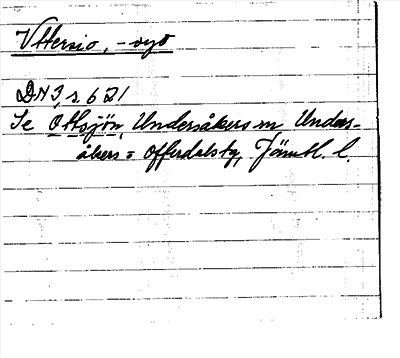 Vttersio, -syo
DN 3, s. 621
Se Ottsjön, Undersåkers sn, Unders-
åkers = Offerdals tg, Jämtl. l.